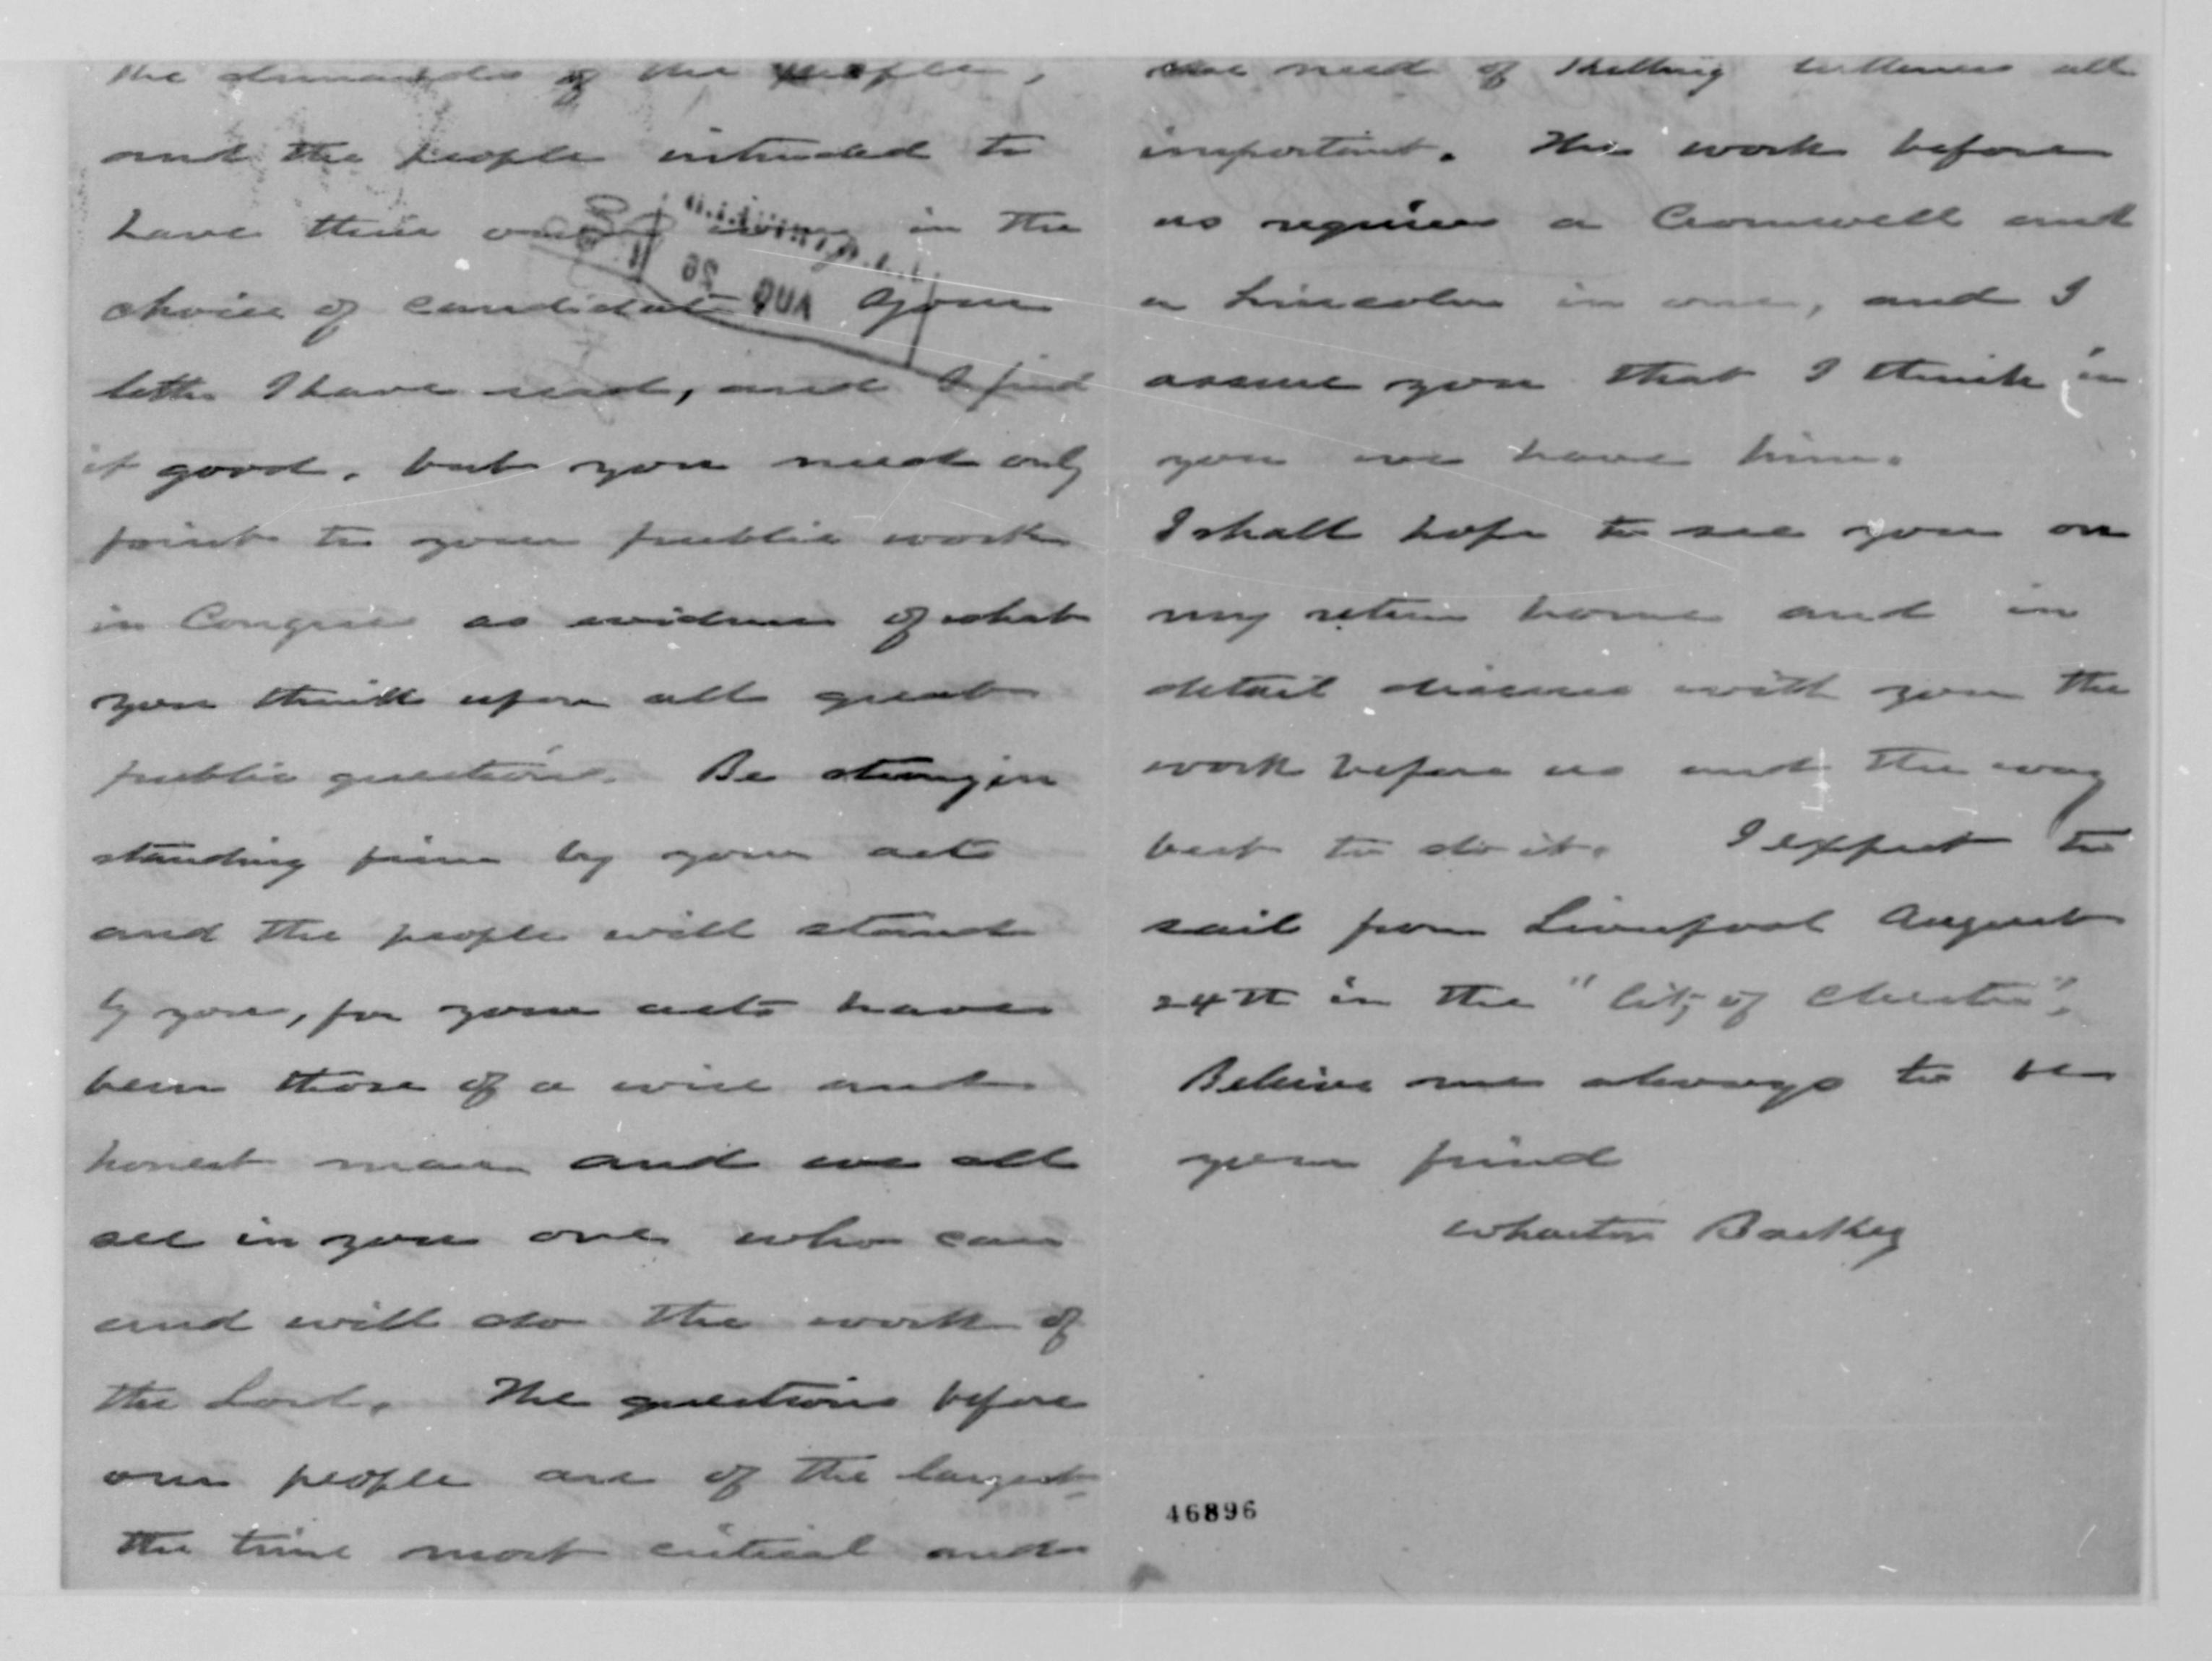 the demands of the people,
and the people intended to
have their own way in the
choice of candidate. Your
letter I have read, and I find
it good, but you need only
point to your public work
in Congress as evidence of what
you think upon all great
public questions. Be strong in
standing firm by your acts
and the people will stand
by you, for your acts have
been those of a wise and
honest man and we all
see in you one who can
and will do the work of
the Lord. The questions before
our people are of the largest
the time most critical and
the need of settling all
important. The work before
us requires a Cromwell and
a Lincoln in one, and I
assure you that I think in
you we have him.
I shall hope to see you on
my return home and in
detail discuss with you the
work before us and the way
best to do it. I expect to
sail from Liverpool August
24th in the "City of Chester".
Believe me always to be
your friend
Wharton Barker
46896
AUG 26